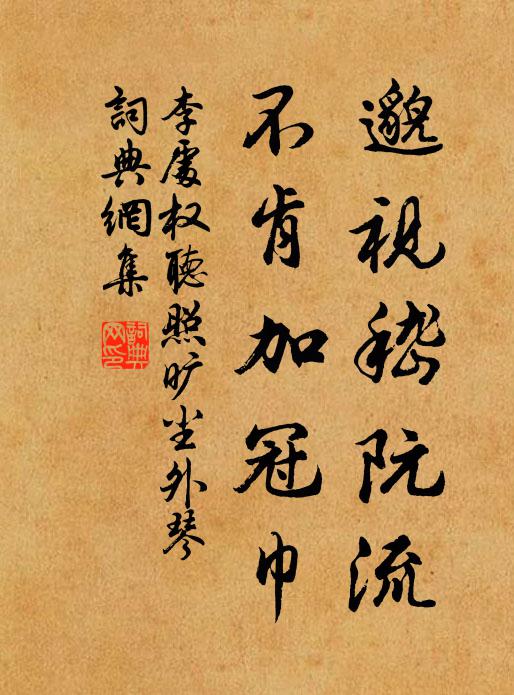 邈視嵇阮流
不肯加冠巾
李處权聽照旷尘外琴
詞典網集
詞典网印